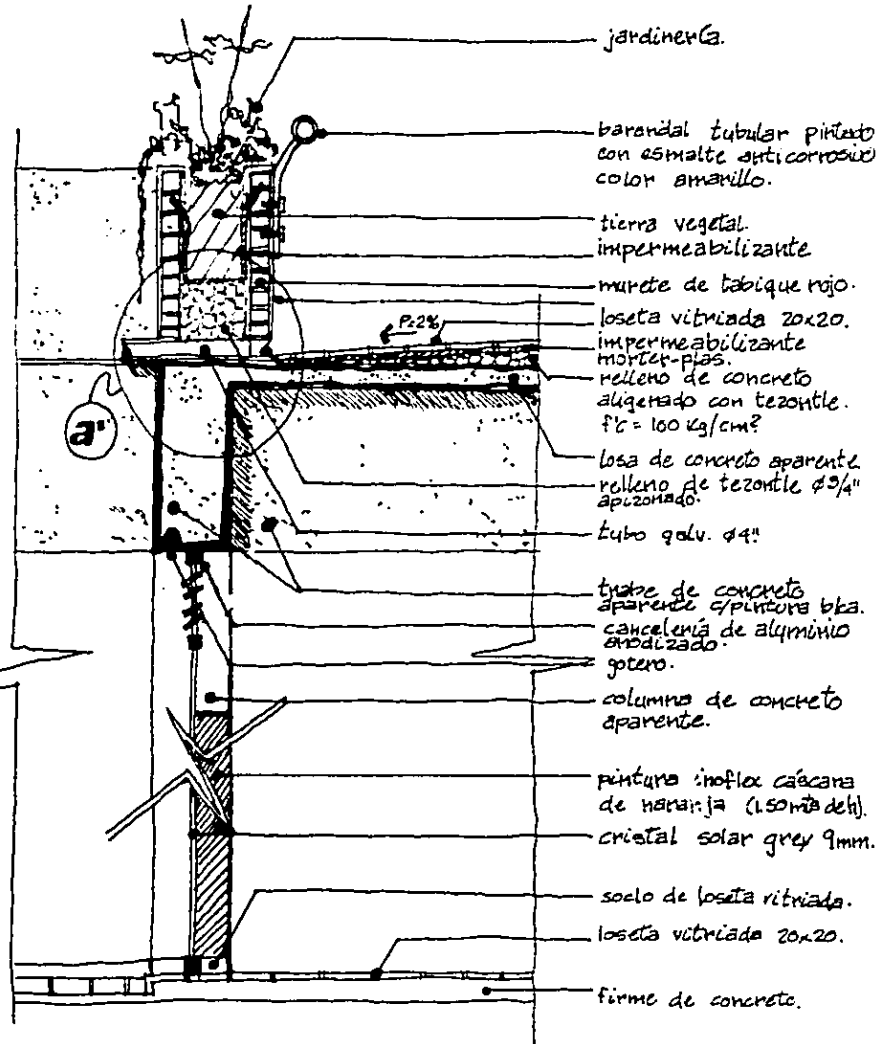 jardinería.
barandal tubular pintado
con esmalte anticorrosivo
color amarillo.
tierra vegetal.
impermeabilizante
murete de tabique rojo.
loseta vitriada 20x20.
P=2%
impermeabilizante
morter-plas.
relleno de concreto
aligerado con tezontle.
f'c = 100 Kg/cm²
losa de concreto aparente
relleno de tezontle ø3/4"
apizonado.
a'
tubo galv. ø4"
trabe de concreto
aparente c/pintura bca.
cancelería de aluminio
anodizado.
gotero.
columna de concreto
aparente.
pintura inoflex cáscara
de naranja (1.50mts de h).
cristal solar grey 9mm.
soclo de loseta vitriada.
loseta vitriada 20x20.
firme de concreto.